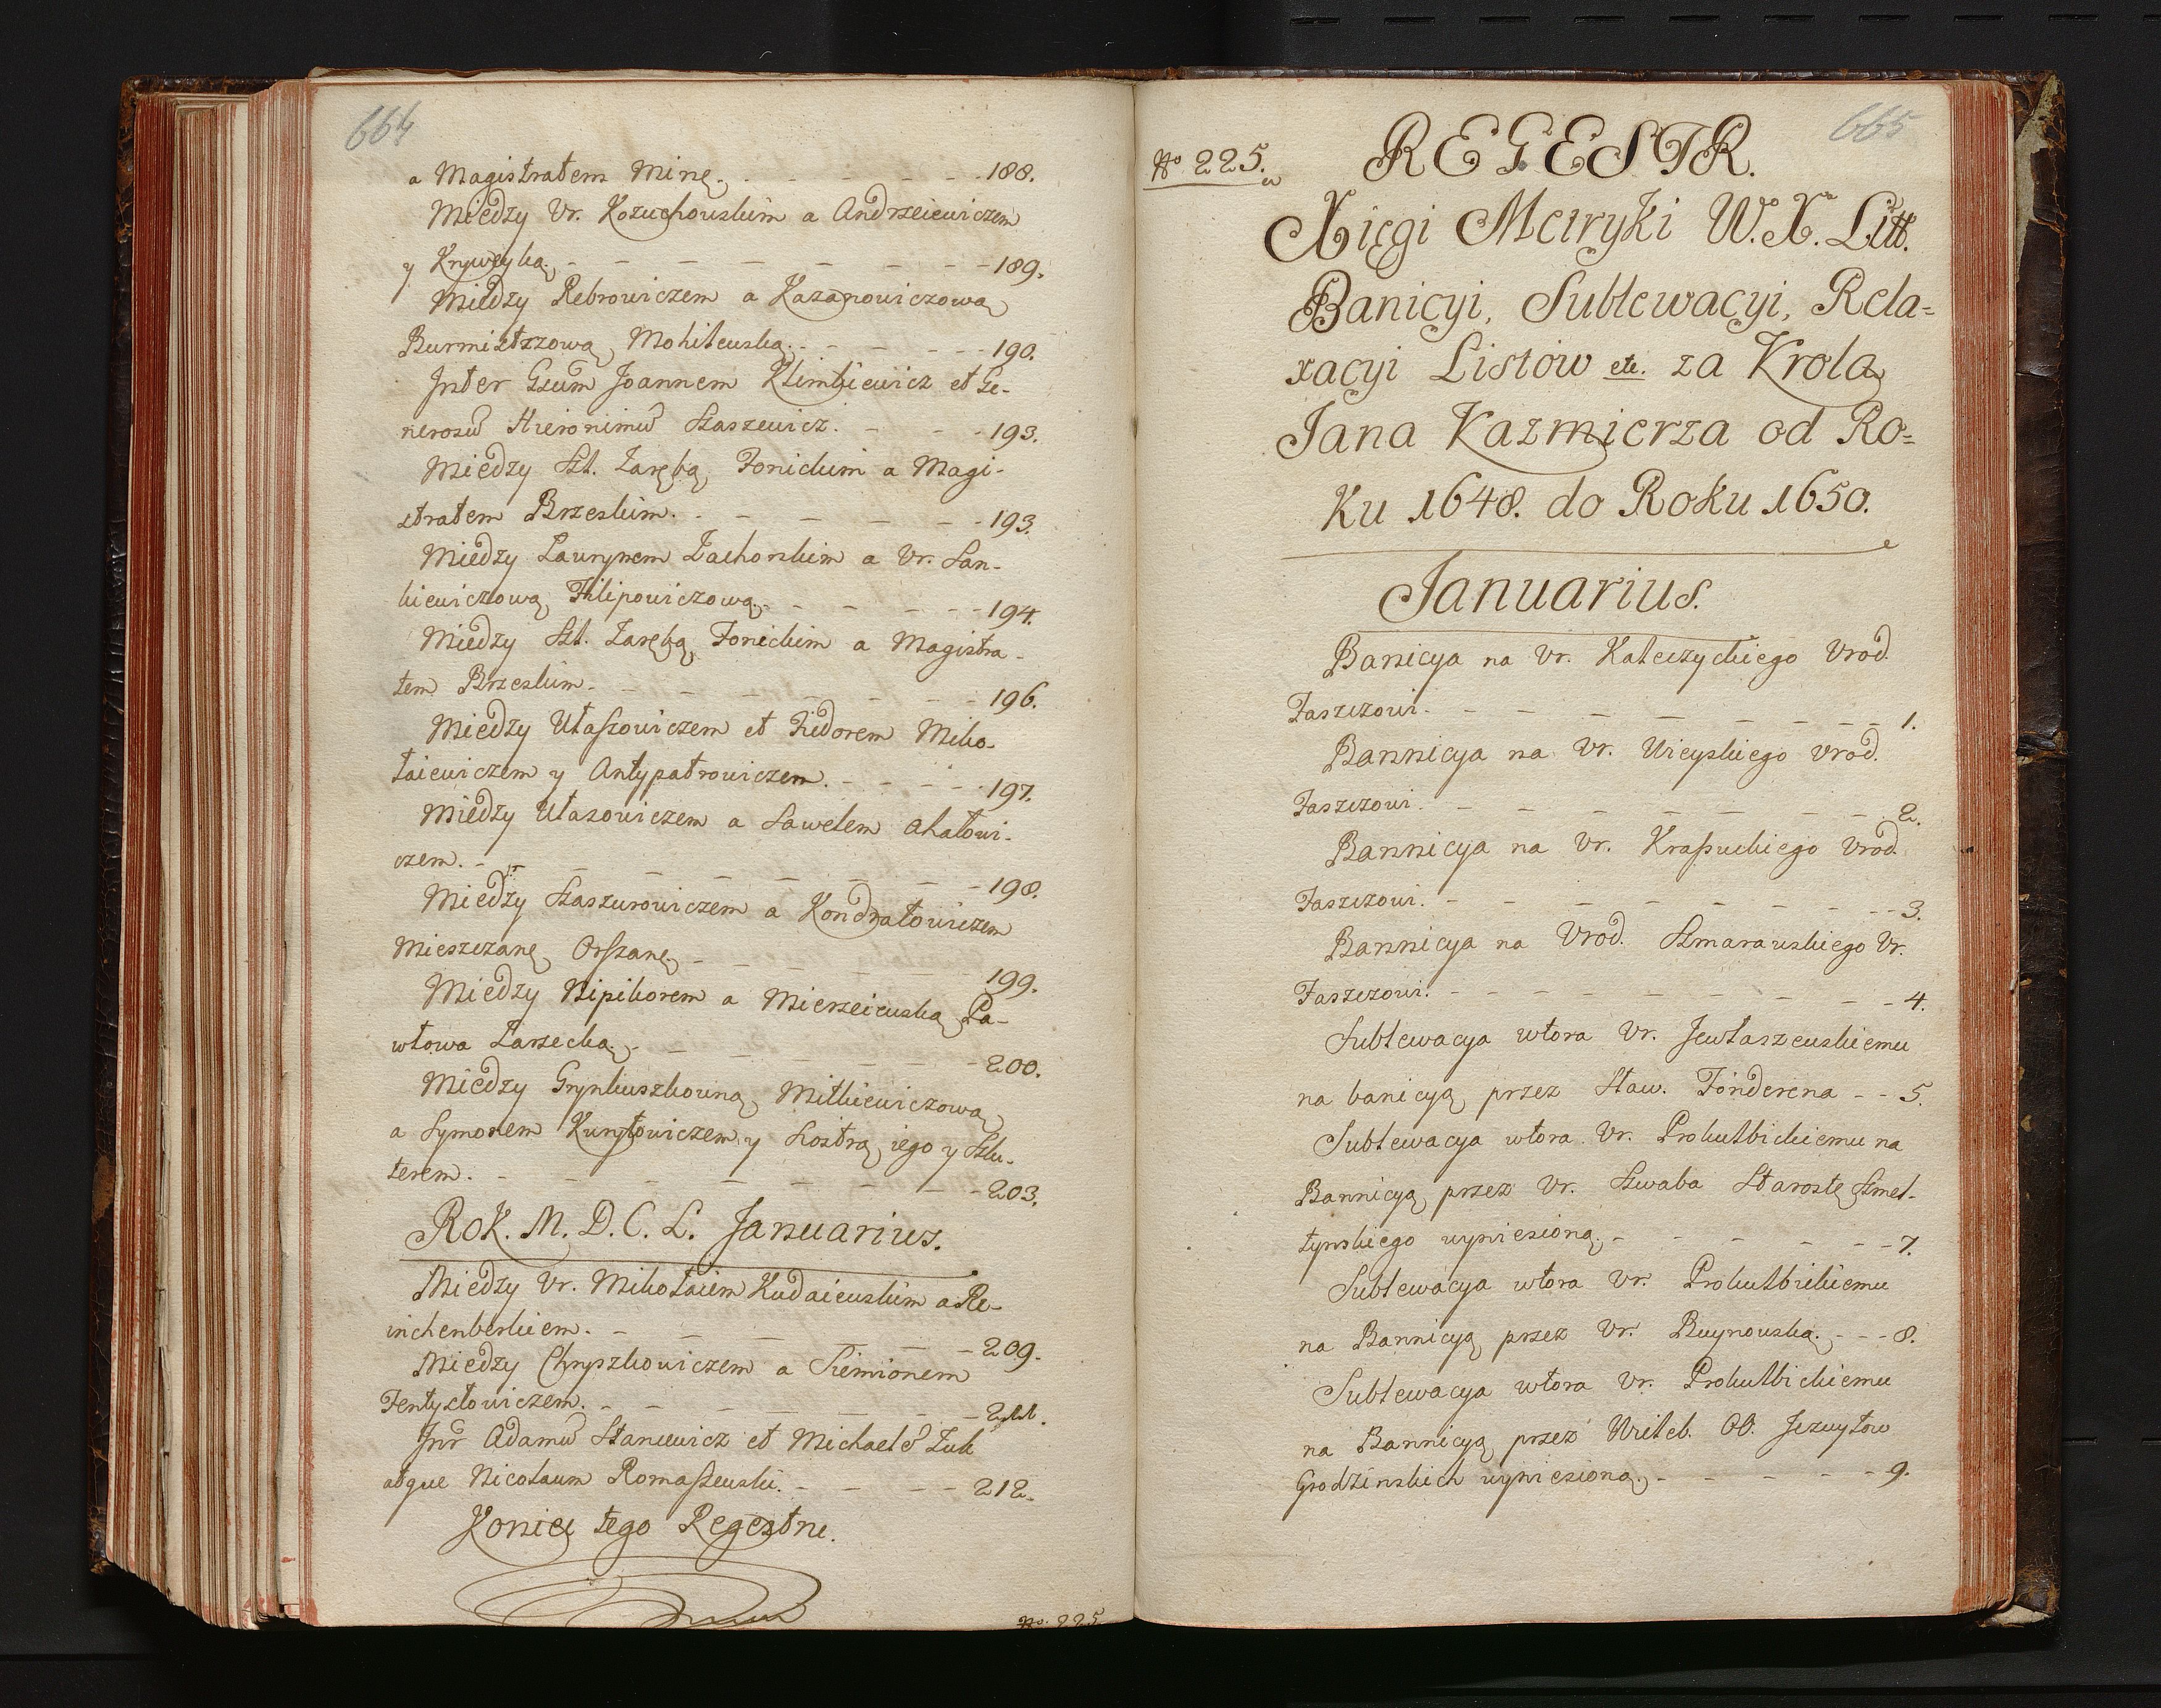 664
a Magistratem Minę. - - - - - - 188.
Między Ur. Kozuchowskim a Andrzeiewiczem
y Kryweyką. - - - - - - - - 189.
Między Rebrowiczem a Kazanowiczową
Burmistrzową Mohilewską. - - - - - - 190.
Inter Gsum Joannem Klimkiewicz et Ge-
nerosũ Hieronimũ Staszewicz. - - - 193.
Między Szl. Zarębą Fonickim a Magi-
stratem Brzeskim. - - - - - - - 193.
Między Lawrynem Zachorskim a Ur. San-
kiewiczową Filipowiczową. - - - - - - 194.
Między Szl. Zarębą Fonickim a Magistra-
tem Brzeskim. - - - - - - - - 196.
Między Ułaszowiczem et Fiedorem Miko-
łaiewiczem y Antypatrowiczem. - - - - - 197.
Między Ułasowiczem a Sawelem Ahałowi-
czem. - - - - - - - - - 198.
Między Staszurowiczem a Kondratowiczem
Mieszczanę Orszanę. - - - - - - 199.
Między Nipikorem a Mierzeiewską Pa-
włowa Zarzecką. - - - - - - - 200.
Między Grynkuszkowną Mitkiewiczową
a Symonem Kuryłowiczem y Siostrą iego y Szlu-
terem. - - - - - - - - - 203.
Rok. M. D. C. L. Januarius.
Między Ur. Mikołaiem Kudaiewskim a Re-
inchenberkiem. - - - - - - 209.
Między Chryszkowiczem a Siemionem
Fentysłowiczem. - - - - - - - 211.
Inr Adamũ Stancewicz et Michaelẽ Zuk
atque Nicolaum Romaszewski. - - - - - 212.
Koniec tego Regestru.
No. 225
665
No 225.
REGESTR.
Xięgi Metryki W. X. Litt.
Banicyi, Sublewacyi, Rela-
xacyi Listow etc. za Krola
Jana Kazmierza od Ro-
ku 1648. do Roku 1650.
Januarius.
Banicya na Ur. Kalczyckiego Urod.
Faszczowi. - - - - - - - - - 1.
Bannicya na Ur. Wieyskiego Urod.
Faszczowi. - - - - - - - - - 2.
Bannicya na Ur. Kraszuckiego Urod.
Faszczowi. - - - - - - - - - 3.
Bannicya na Urod. Szmarawskiego Ur.
Faszczowi. - - - - - - - - - 4.
Sublewacya wtora Ur. Jewłaszewskiemu
na banicyą przez Sław. Fonderena - - 5.
Sublewacya wtora Ur. Prokulbickiemu na
Bannicyą przez Ur. Szwaba Starostę Szmel-
tynskiego wyniesioną. - - - - - - 7.
Sublewacya wtora Ur. Prokulbickiemu
na Bannicyą przez Ur. Buynowską. - - - 8.
Sublewacya wtora Ur. Prokulbickiemu
na Bannicyą przez Wieleb. OO. Jezuytow
Grodzinskich wyniesioną. - - - - - - 9.